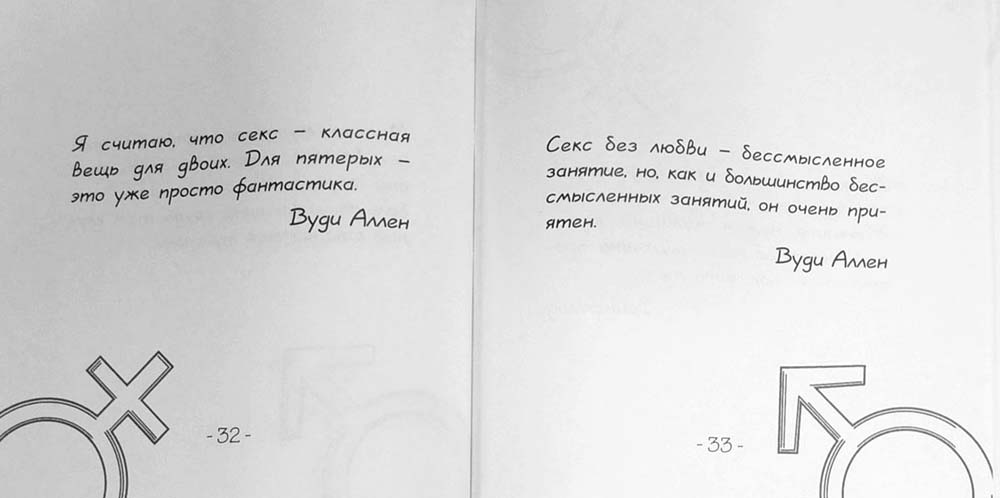 Я считаю, что секс – классная
вещь для двоих. Для пятерых –
это уже просто фантастика.
Вуди Аллен
- 32 -
Секс без любви – бессмысленное
занятие, но, как и большинство бес-
смысленных занятий, он очень при-
ятен.
Вуди Аллен
- 33 -